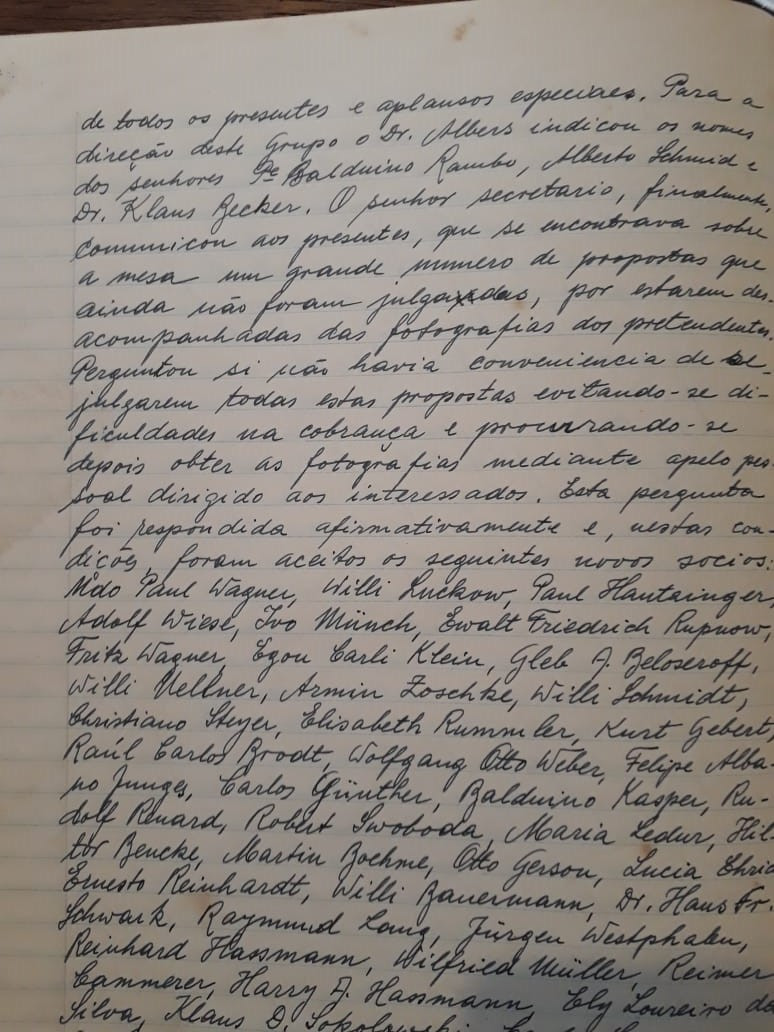 de todos os presentes e aplausos especiaes. Para a
direção deste Grupo o Dr. Albers indicou os nomes
dos senhores Pe Balduino Rambo, Alberto Schmid e
Dr. Klaus Becker. O senhor secretario, finalmente,
comunicou aos presentes, que se encontrava sobre
a mesa um grande numero de propostas que
ainda não foram julgadas, por estarem des-
acompanhadas das fotografias dos pretendentes.
Perguntou si não havia conveniencia de se
julgarem todas estas propostas evitando-se di-
ficuldades na cobrança e procurando-se
depois obter as fotografias mediante apelo pes-
soal dirigido aos interessados. Esta pergunta
foi respondida afirmativamente e, nestas con-
dições, foram aceitos os seguintes novos socios:
Udo Paul Wagner, Willi Luckow, Paul Hantzinger,
Adolf Wiese, Ivo Münch, Ewalt Friedrich Rupnow,
Fritz Wagner, Egon Carli Klein, Gleb A. Beloseroff,
Willi Uellner, Armin Zoschke, Willi Schmidt,
Christiano Steyer, Elisabeth Rummler, Kurt Gebert,
Raúl Carlos Brodt, Wolfgang Otto Weber, Felipe Alba-
no Junges, Carlos Günther, Balduino Kasper, Ru-
dolf Renard, Robert Swoboda, Maria Ledur, Hil-
tor Bencke, Martin Boehme, Otto Gerson, Lucia
Ernesto Reinhardt, Willi Bauermann, Dr. Hans Fr.
Schwark, Raymund Lang, Jürgen Westphalen,
Reinhard Hassmann, Wilfried Müller, Reimer
Cammerer, Harry A. Hassmann, Ely Loureiro da
Silva, Klaus D. Sokolowski